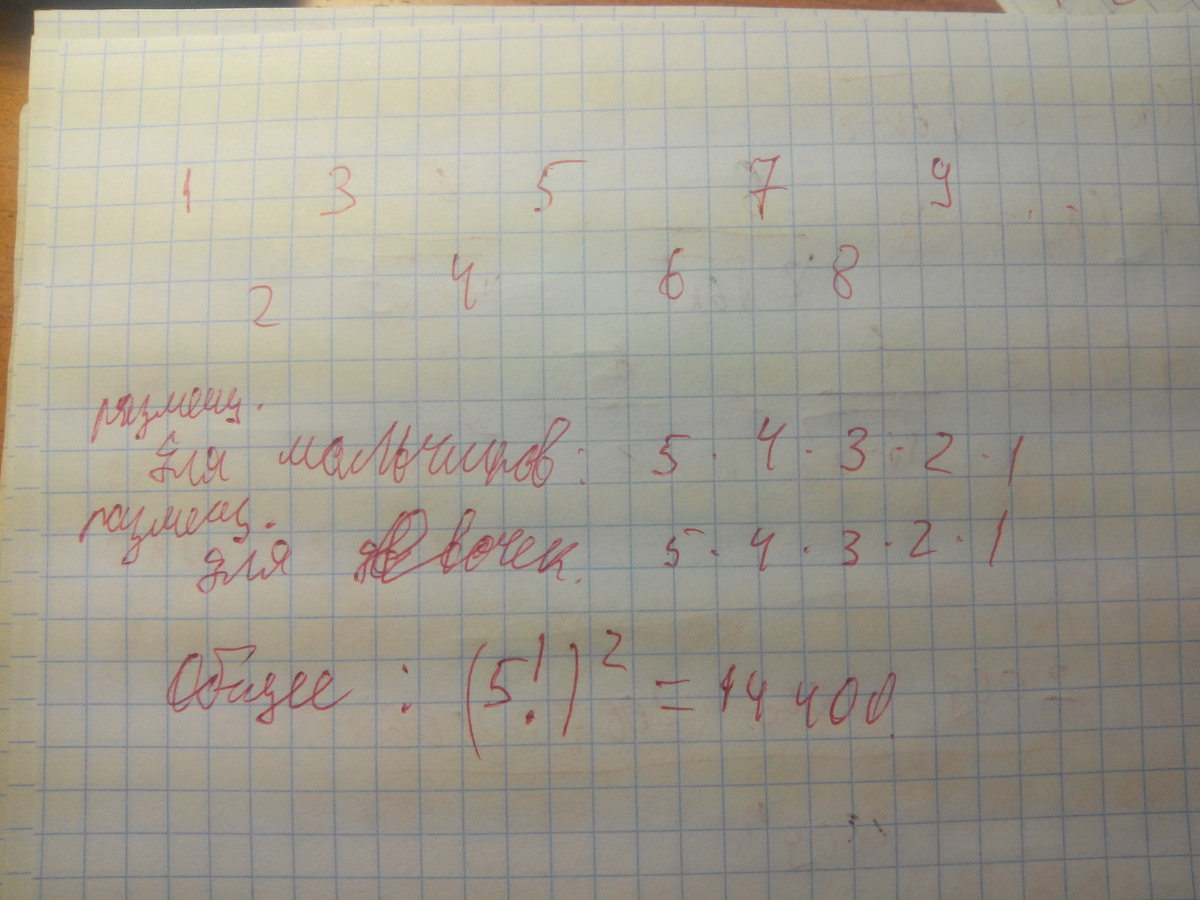 1 3 5 7 9 ..
2 4 6 8
размещ.
для мальчиков: 5 · 4 · 3 · 2 · 1
размещ.
для девочек. 5 · 4 · 3 · 2 · 1
Общее : (5!)² = 14 400